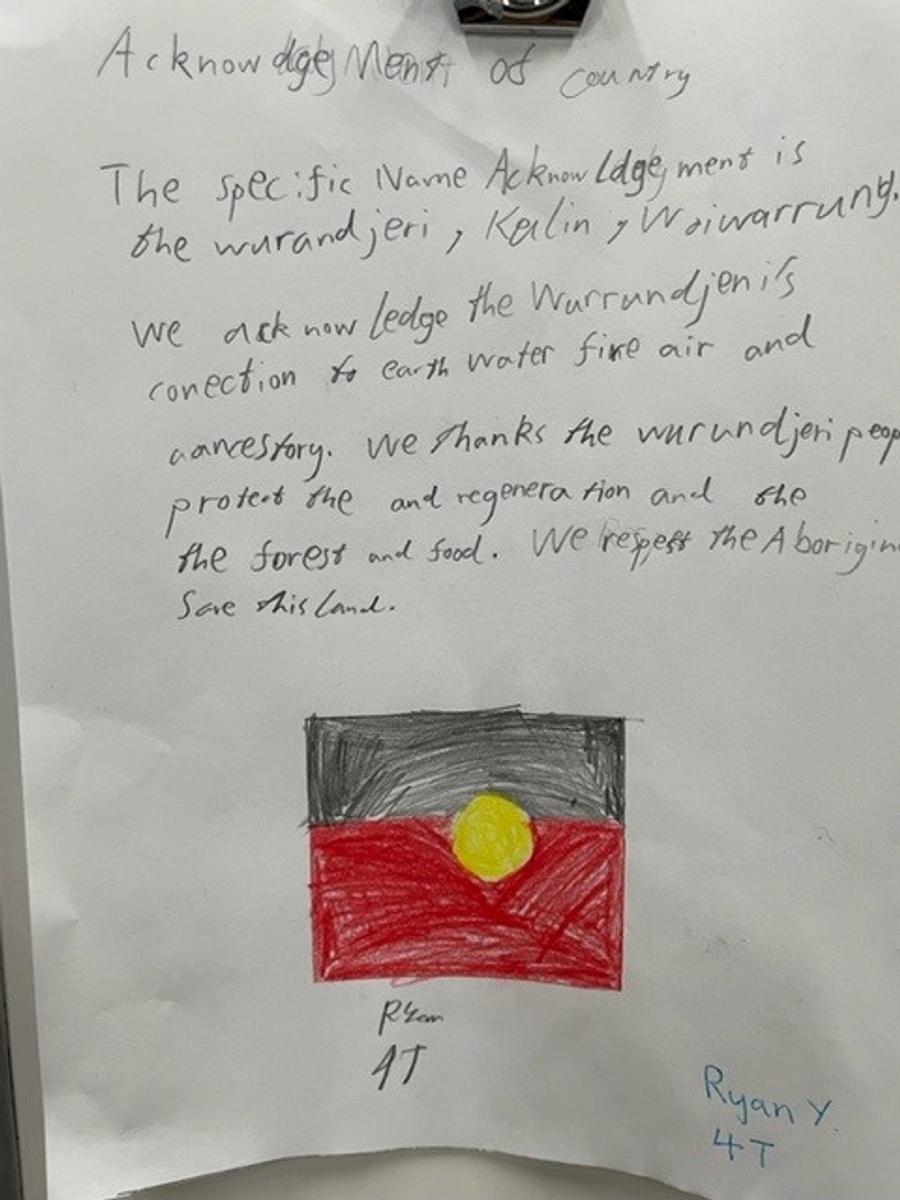 Acknowldgement of country
The specific Name Acknowldgement is
the wurandjeri, Kulin, Woiwarrung.
We acknowledge the Wurrundjeni's
conection to earth water fire air and
aancestory. We thanks the wurundjeri peop
protect the and regeneration and the
the forest and food. We respest the Aborigin
Save this land.
Ryan
4T
Ryan Y.
4T